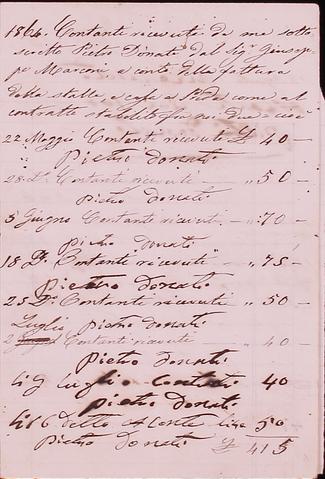 1864. Contanti ricevuti da me sotto
scritto Pietro Donati dal Sig. Giusep-
pe Marconi, a conto della fattura
della stalla, e casa a come al
contratto stabilito fra noi due cioè
22 Maggio Contanti ricevuti £ 40 —
Pietro Donati
28 D.º Contanti ricevuti — „ 50 —
Pietro Donati
5 Giugno Contanti ricevuti — „ 70 —
Pietro Donati
18 D.º Contanti ricevuti — „ 75 —
Pietro Donati
25 D.º Contanti ricevuti „ 50 —
Luglio Pietro Donati
2 Contanti ricevuti — 40 —
Pietro Donati
li 9 luglio contati 40
Pietro Donati
li 16 detto A Conte lire 50
Pietro Donati £ 415